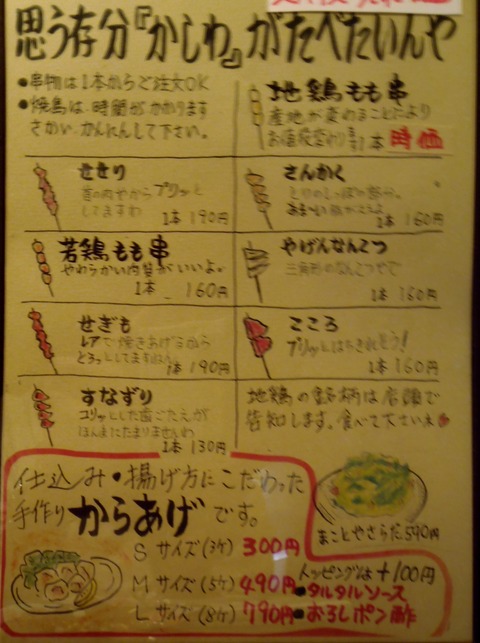 思う存分『かしわ』がたべたいんや
●串物は1本からご注文OK
●焼鳥は、時間がかかります
さかい、かんにんして下さい。
地鶏もも串
産地が変わることにより
お値段変わります 1本 時価
せせり
首の肉やからプリッと
してますわ
1本 190円
さんかく
とりのしっぽの部分。
あま〜い脂がええよ
1本 160円
若鶏もも串
やわらかい肉質がいいよ。
1本 160円
やげんなんこつ
三角形のなんこつやで
1本 160円
せぎも
レアで焼きあげるから
とろっとしてますねん。
1本 190円
こころ
プリッとはちきれそう!
1本 160円
すなずり
コリッとした歯ごたえが
ほんまにたまりませんわ
1本 130円
地鶏の銘柄は店頭で
告知します。食べて下さいネ
仕込み・揚げ方にこだわった
手作りからあげです。
まことやさらだ590円
Sサイズ(3ケ) 300円
Mサイズ(5ケ) 490円
Lサイズ(8ケ) 790円
トッピングは+100円
●タルタルソース
●おろしポン酢